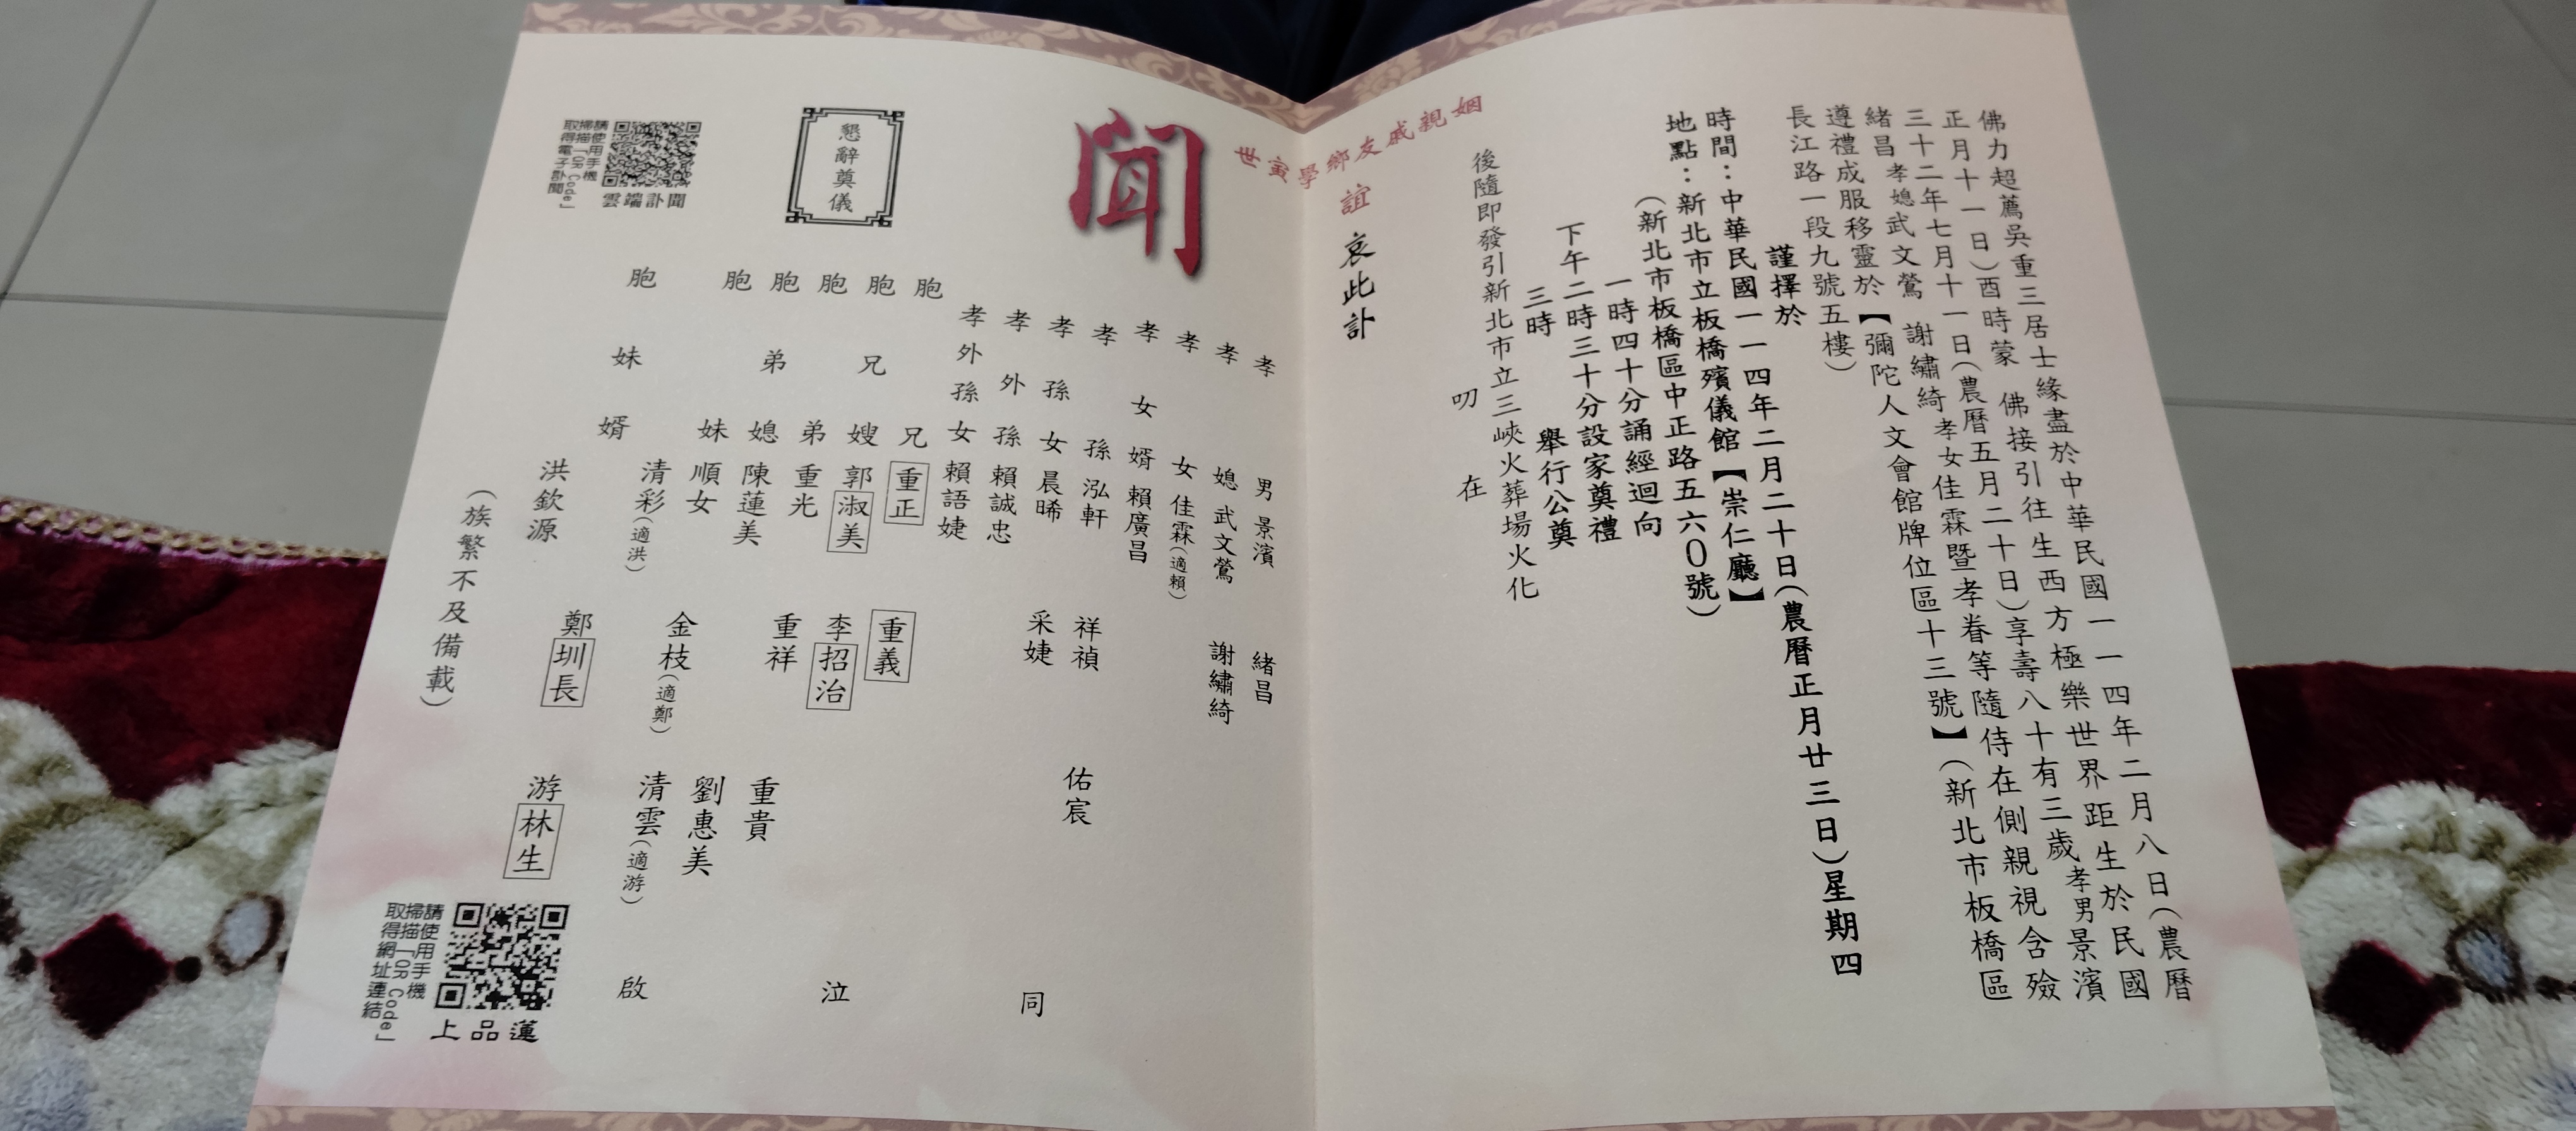 佛力超薦吳重三居士緣盡於中華民國一一四年二月八日(農曆
正月十一日)酉時蒙 佛接引往生西方極樂世界距生於民國
三十二年七月十一日(農曆五月二十日)享壽八十有三歲孝男景濱
緒昌 孝媳武文鶯 謝繡綺孝女佳霖暨孝眷等隨侍在側親視含殮
遵禮成服移靈於【彌陀人文會館牌位區十三號】(新北市板橋區
長江路一段九號五樓)
謹擇於
時間:中華民國一一四年二月二十日(農曆正月廿三日)星期四
地點:新北市立板橋殯儀館【崇仁廳】
(新北市板橋區中正路五六0號)
一時四十分誦經迴向
下午二時三十分設家奠禮
三時 舉行公奠
後隨即發引新北市立三峽火葬場火化
叨 在
姻親戚友鄉學寅世
誼 哀此訃
聞
孝 男 景濱 緒昌
孝 媳 武文鶯 謝繡綺
孝 女 佳霖(適賴)
孝女婿 賴廣昌
孝 孫 泓軒 祥禎 佑宸
孝孫女 晨晞 采婕
孝外孫 賴誠忠
孝外孫女 賴語婕
胞 兄 重正 重義
胞兄嫂 郭淑美 李招治
胞 弟 重光 重祥 重貴
胞弟媳 陳蓮美 劉惠美
胞 妹 順女
清彩(適洪) 金枝(適鄭) 清雲(適游)
胞妹婿 洪欽源 鄭圳長 游林生
同 泣 啟
(族繁不及備載)
懇辭奠儀
請使用手機
掃描「QR Code」
取得電子訃聞
雲端訃聞
請使用手機
掃描「QR Code」
取得網址連結
上品蓮